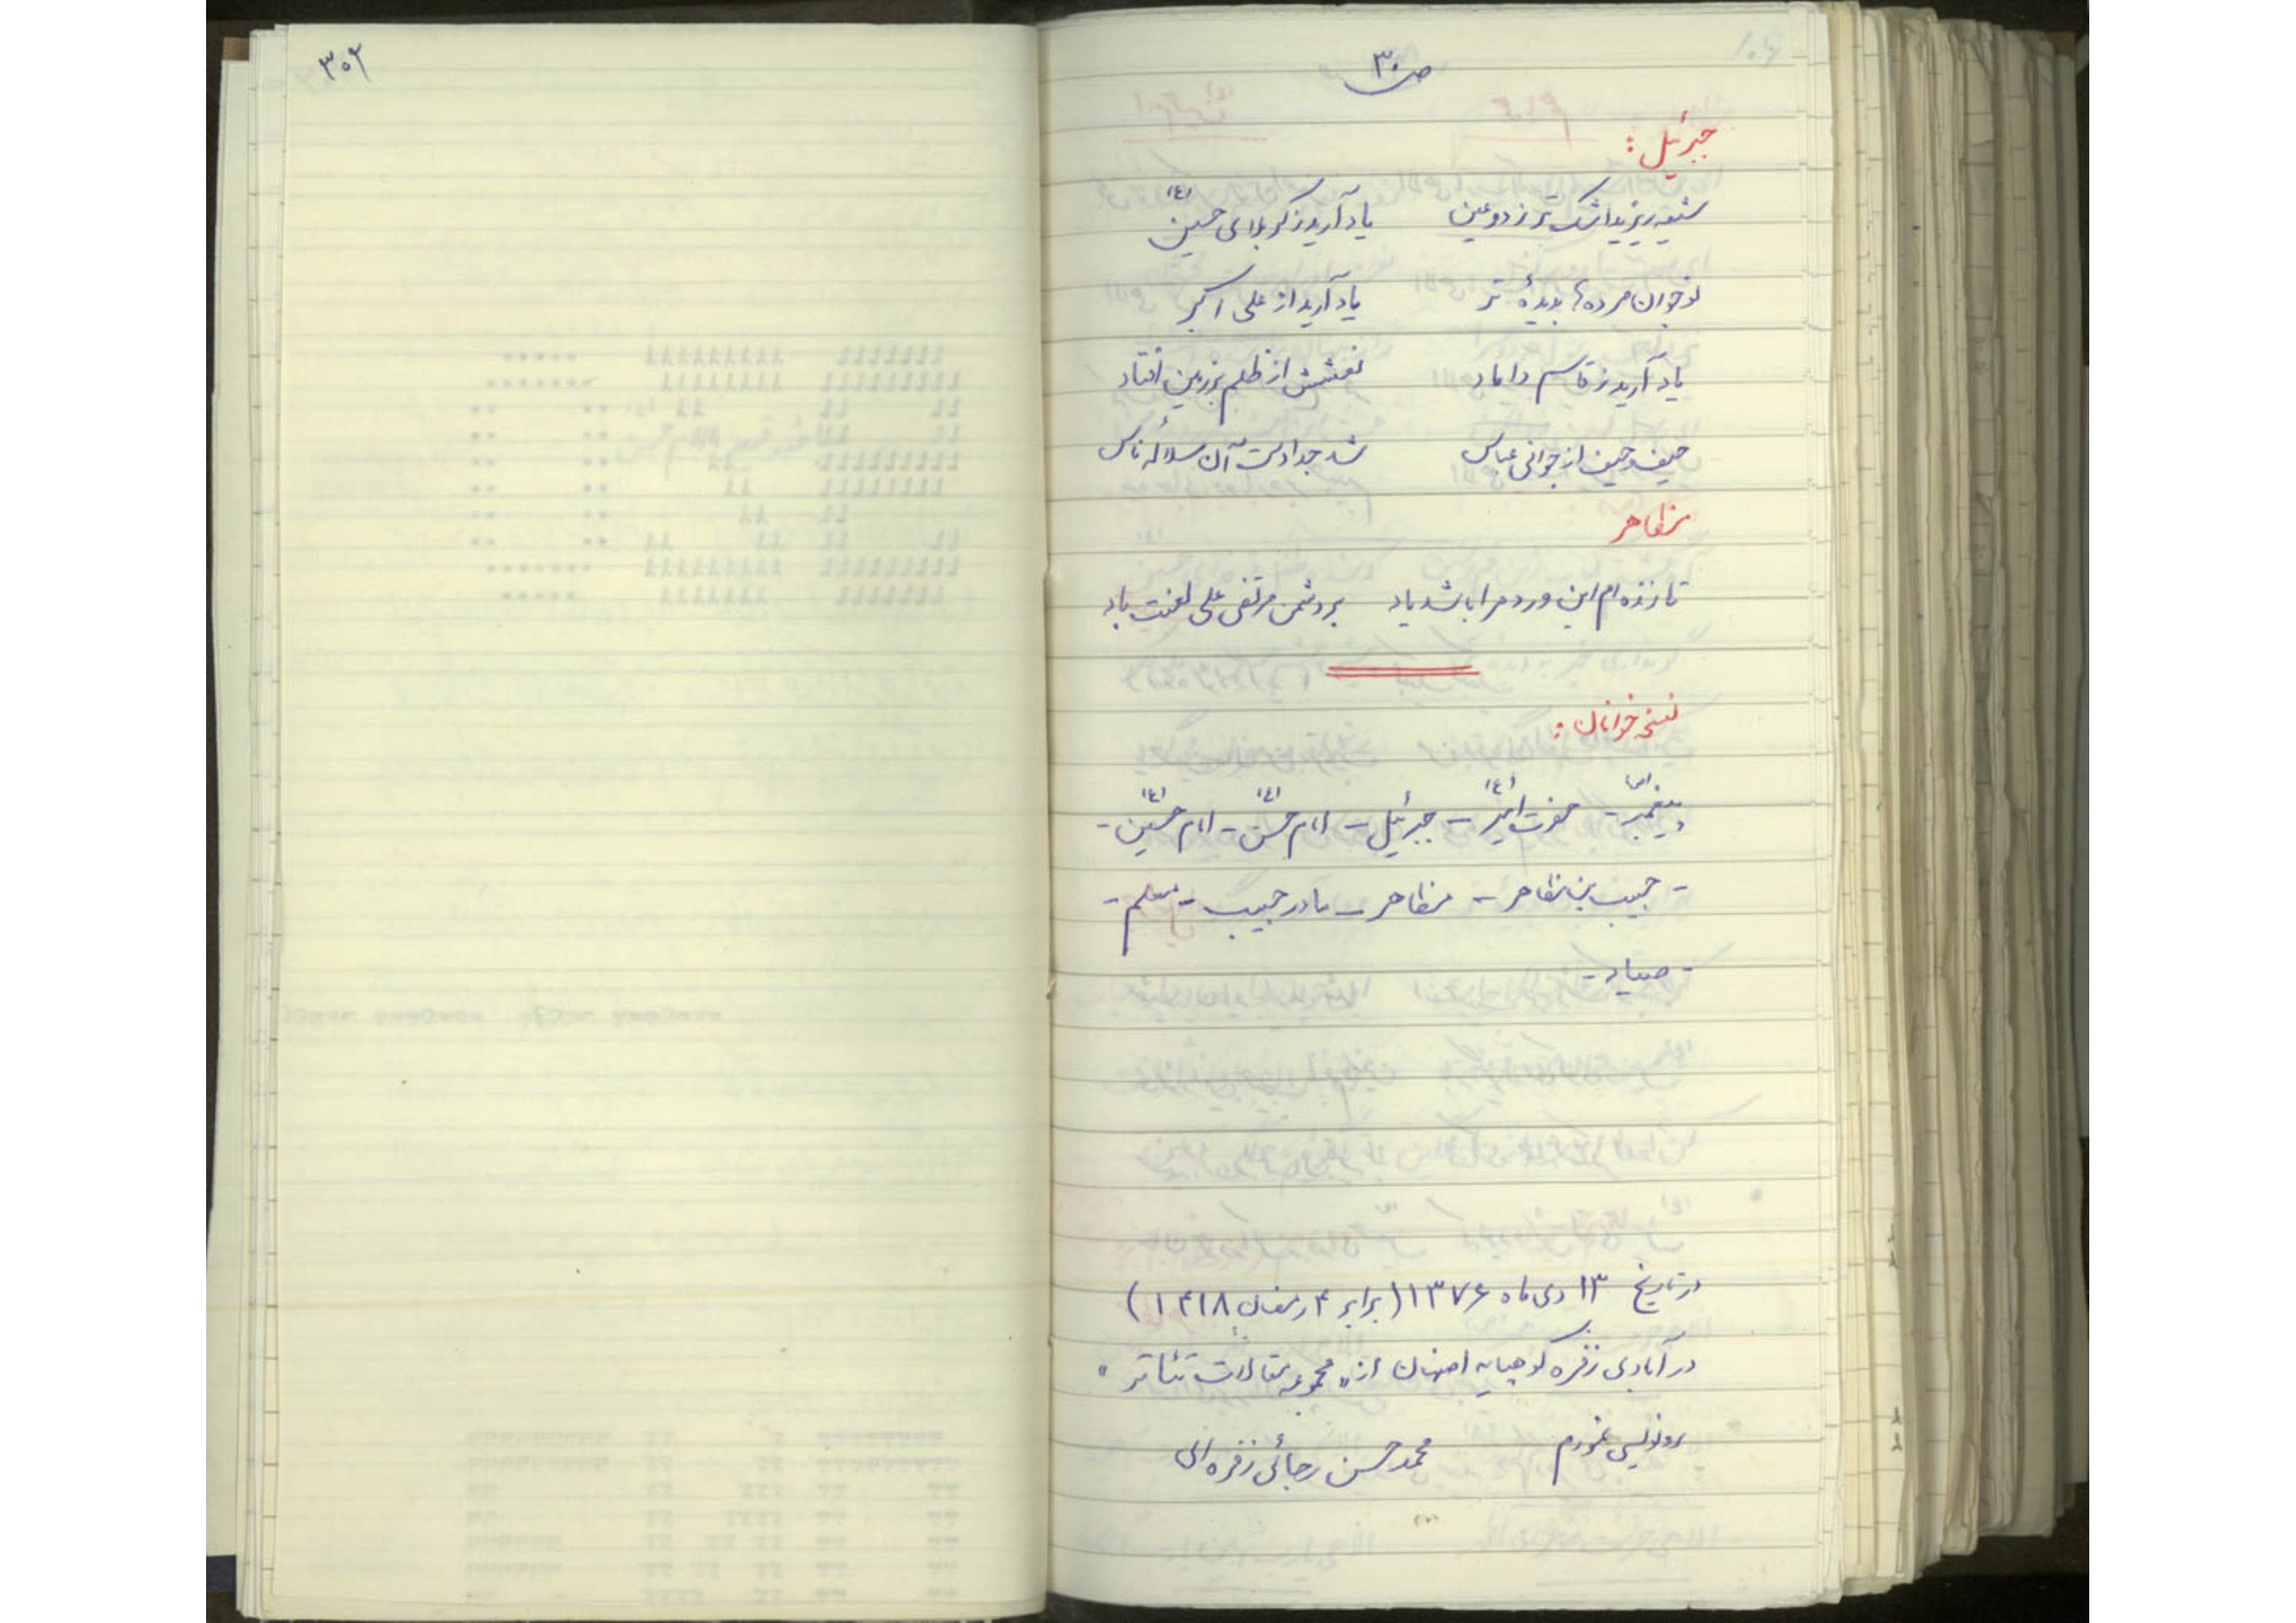 ص ۳۰
جبرئیل:
شیعه ریزید اشک تر ز دو عین یاد آرید ز کربلای حسین (ع)
نوجوان مرده‌ها بدیدهٔ تر یاد آرید از علی اکبر
یاد آرید ز قاسم داماد نعشش از ظلم بر زمین افتاد
حیف و حیف از جوانی عباس شد جدا دست آن سلالهٔ ناس
مظاهر
تا زنده ام این ورد مرا باشد یاد بر دشمن مرتضی علی لعنت باد
نسخه خوانان:
پیغمبر (ص) - حضرت امیر (ع) - جبرئیل - امام حسن (ع) - امام حسین (ع) -
- حبیب بن مظاهر - مظاهر - مادر حبیب - معلم -
- صیاد -
در تاریخ ۱۳ دی ماه ۱۳۷۶ (برابر ۴ رمضان ۱۴۱۸)
در آبادی زفره کوهپایه اصفهان از «مجموعه مقالات تئاتر»
رونویسی نمودم محمد حسن رجائی زفره ای
۳۰۲